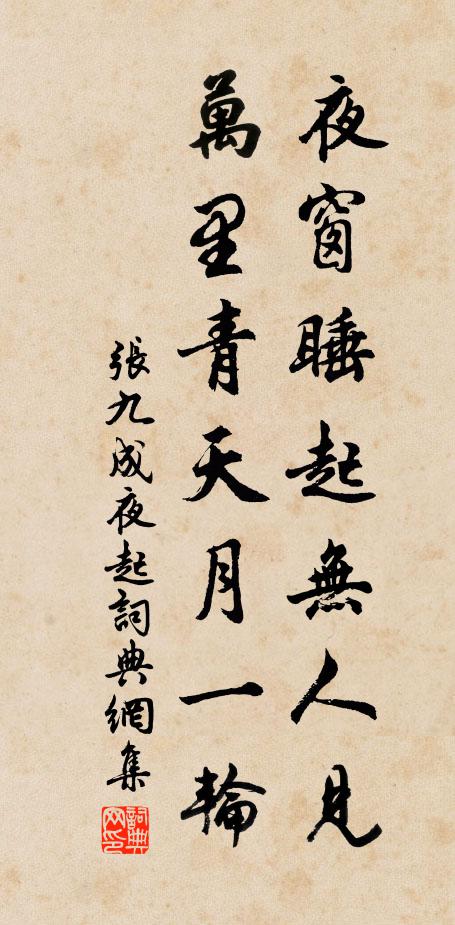 夜窗睡起無人見
萬里青天月一輪
張九成夜起詞典網集
詞典網印